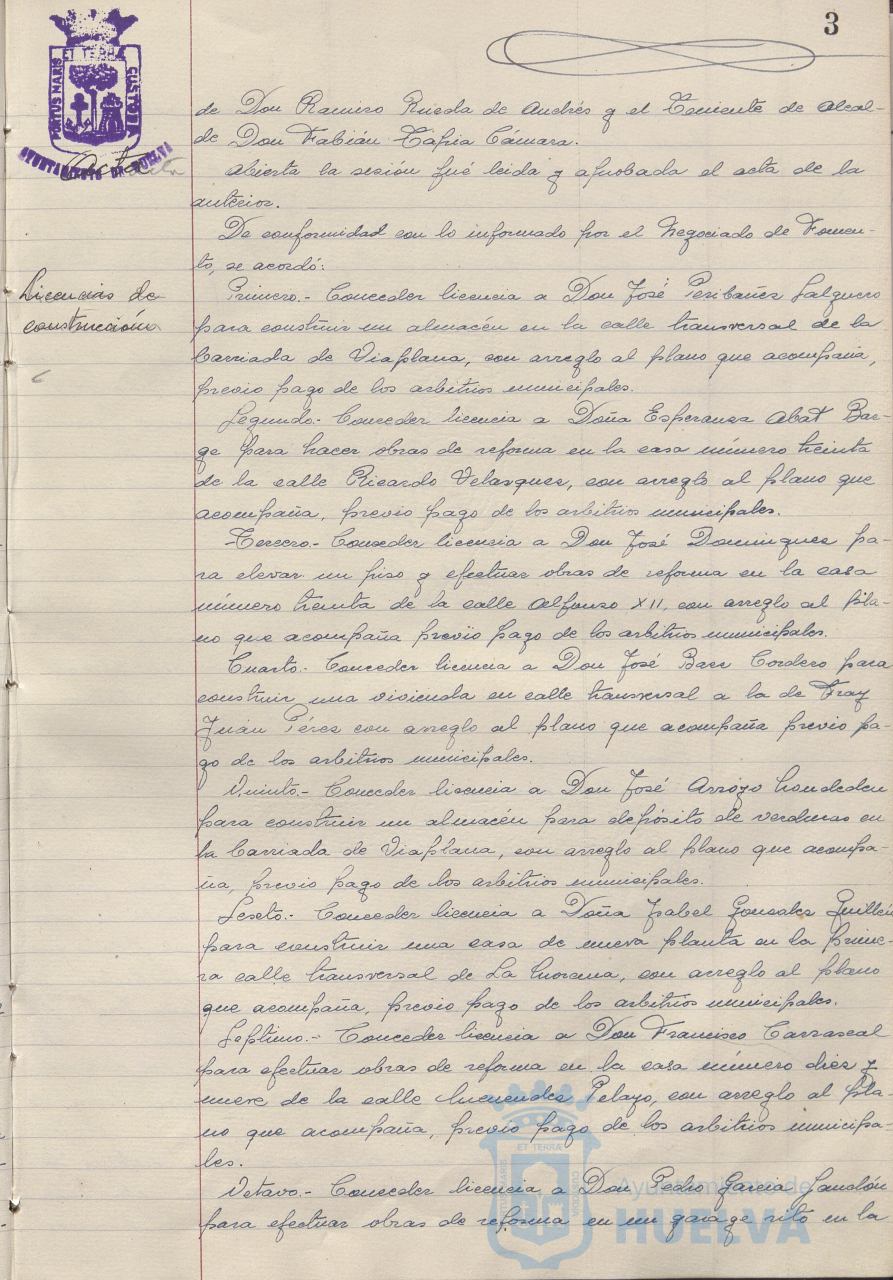 3
PORTUS MARIS ET TERRÆ CUSTODIA
AYUNTAMIENTO DE HUELVA
Acta
de Don Ramiro Rueda de Andrés y el Teniente de Alcal-
de Don Fabián Tapia Cámara.
Abierta la sesión fué leida y aprobada el acta de la
anterior.
De conformidad con lo informado por el Negociado de Fomen-
to, se acordó:
Licencias de
construcción
Primero.- Conceder licencia a Don José Peribañez Salguero
para construir un almacén en la calle transversal de la
barriada de Viaplana, con arreglo al plano que acompaña,
previo pago de los arbitrios municipales.
Segundo.- Conceder licencia a Doña Esperanza Abat Bar-
ge para hacer obras de reforma en la casa número treinta
de la calle Ricardo Velazquez, con arreglo al plano que
acompaña, previo pago de los arbitrios municipales.
Tercero.- Conceder licencia a Don José Dominguez pa-
ra elevar un piso y efectuar obras de reforma en la casa
número treinta de la calle Alfonso XII, con arreglo al pla-
no que acompaña previo pago de los arbitrios municipales.
Cuarto.- Conceder licencia a Don José Baez Cordero para
construir una vivienda en calle transversal a la de Fray
Juán Pérez con arreglo al plano que acompaña previo pa-
go de los arbitrios municipales.
Quinto.- Conceder licencia a Don José Arroyo
para construir un almacén para depósito de verduras en
la barriada de Viaplana, con arreglo al plano que acompa-
ña, previo pago de los arbitrios municipales.
Sexto.- Conceder licencia a Doña Isabel Gonzalez Guillén
para construir una casa de nueva planta en la prime-
ra calle transversal de La Morana, con arreglo al plano
que acompaña, previo pago de los arbitrios municipales.
Septimo.- Conceder licencia a Don Francisco Carrascal
para efectuar obras de reforma en la casa número diez y
nueve de la calle Menendez Pelayo, con arreglo al pla-
no que acompaña, previo pago de los arbitrios municipa-
les.
Octavo.- Conceder licencia a Don Pedro Garcia
para efectuar obras de reforma en un garage sito en la
Ayuntamiento de
HUELVA